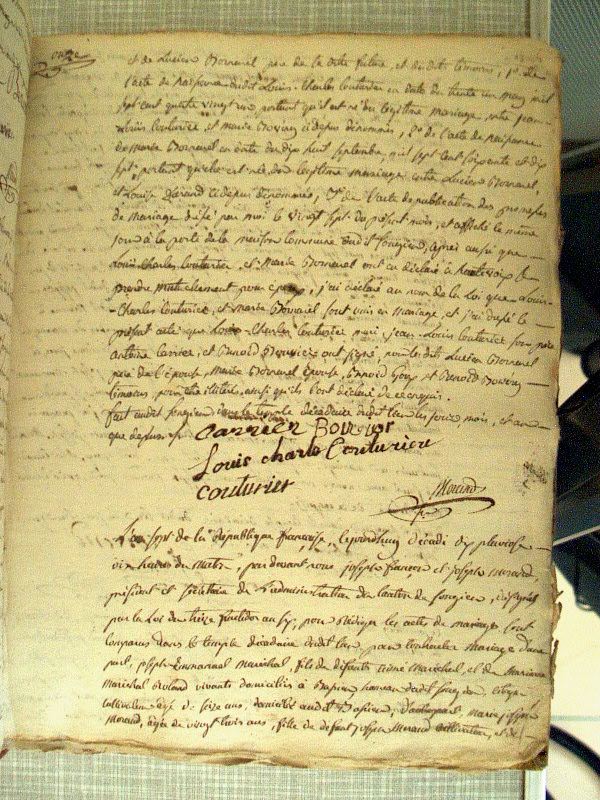 onze
et de Lucien Bovenel père de la dite future, et desdits témoins, 1° de
l'acte de naissance dudit Louis Charles Couturier en date du trente un may mil
sept cent quatre vingt un portant qu'il est né du légitime mariage entre jean
Louis Couturier et marie Bovier ci depuis dénommés, 2° de l'acte de naissance
de Marie Bovenel en date du dix huit septembre, mil sept cent soixante et dix
sept portant qu'elle est née du légitime mariage entre Lucien Bovenel,
et Louise ci depuis dénommés, 3° de l'acte de publication des promesses
de mariage dressé par moi le vingt sept du présent mois, et affiché le même
jour à la porte de la maison Commune dudit Songieu, après aussi que
Louis Charles Couturier, et Marie Bovenel ont eu déclaré à haute voix se
prendre mutuellement pour époux, j'ai déclaré au nom de la Loi que Louis
Charles Couturier, et Marie Bovenel sont unis en mariage et j'ai dressé le
présent acte que Louis Charles Couturier mari, jean Louis Couturier son père
antoine Carrier, et Benoid ont signé, non ledit Lucien Bovenel
père de l'épouse, Marie Bovenel épouse, Benoid et Benoid
témoins, pour être illitérés, ainsi qu'ils l'ont déclaré de ce requis.
fait audit Songieu dans le temple décadaire dudit lieu les jour, mois, et an
que depuis
Carrier Bovier
Louis charle Couturier
couturier
Morand
L'an sept de la République française, le jourd'huy décadi dix pluviose
dix heures du matin, par devant nous joseph françois et joseph Morand,
président et secrétaire de l'administration du canton de Songieu, désignés
par la Loi du treize fructidor an six, pour rédiger les actes de mariage sont
comparus dans le temple décadaire dudit lieu, pour contracter mariage d'une
part, joseph Emmanuel Maréchal, fils de défunts aimé Maréchal, et de Marianne
Maréchal Roland vivants domiciliés à Bassieu hameau dudit Songieu, citoyen
cultivateur âgé de seize ans, domicilié audit Bassieu, d'autre part Marie joseph
Morand, âgée de vingt trois ans, fille de défunt joseph Morand cultivateur, et de